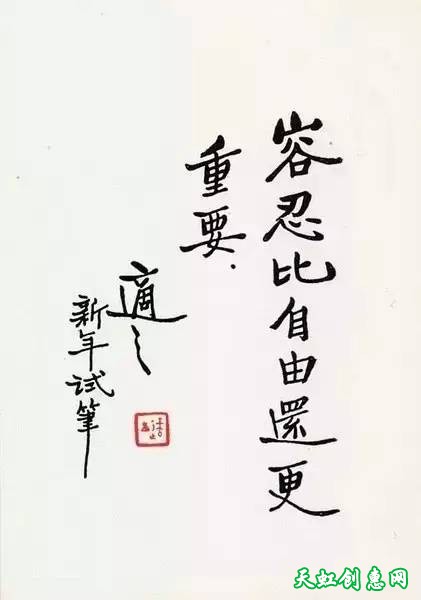 容忍比自由還更
重要.
適之
新年試筆
天虹创惠网